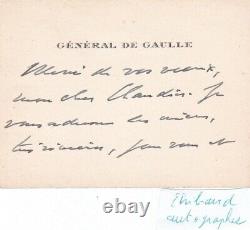 GÉNÉRAL DE GAULLE
Merci de vos vœux,
mon cher Claudius. Je
vous adresse les miens,
très sincères, pour vous et
autographe
ebay